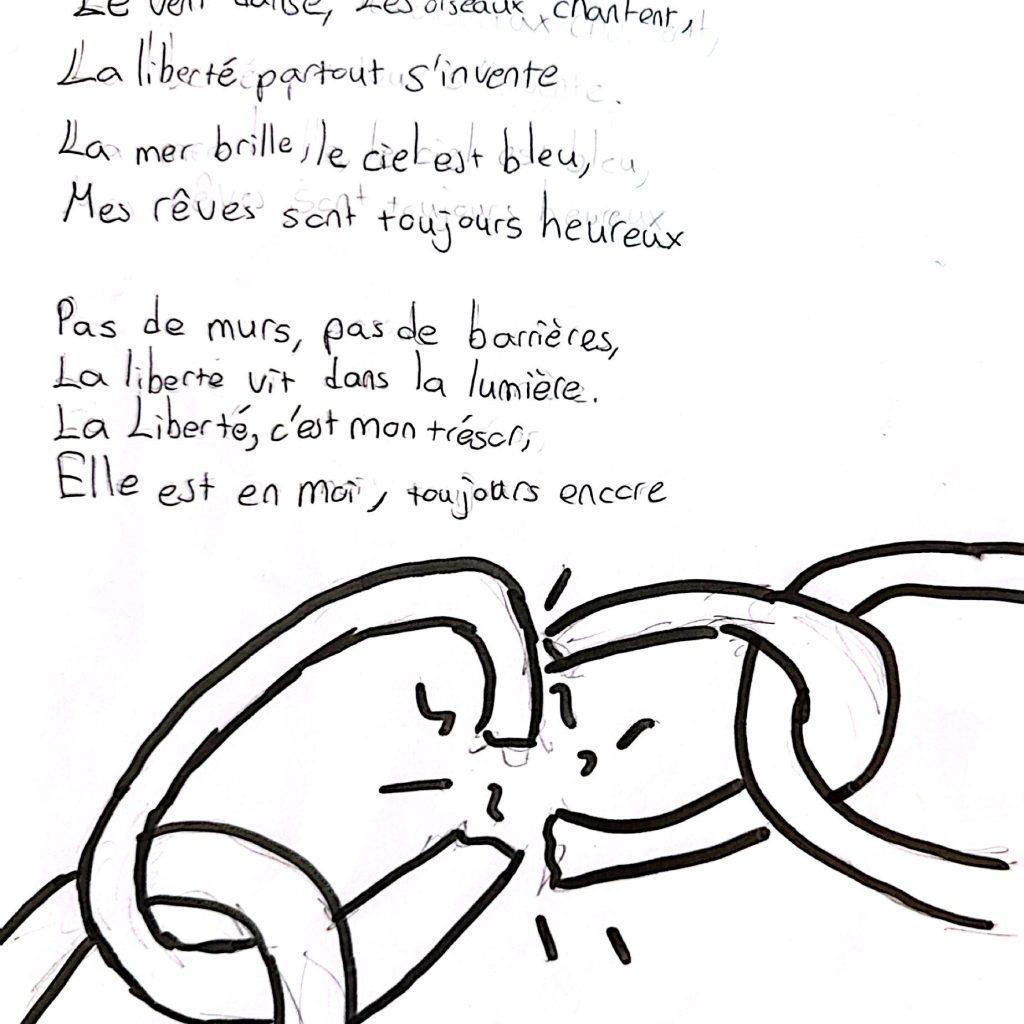 Le vent danse, Les oiseaux chantent,
La liberté partout s'invente
La mer brille, le ciel est bleu,
Mes rêves sont toujours heureux
Pas de murs, pas de barrières,
La liberte vit dans la lumière.
La Liberté, c'est mon trésor,
Elle est en moi, toujours encore